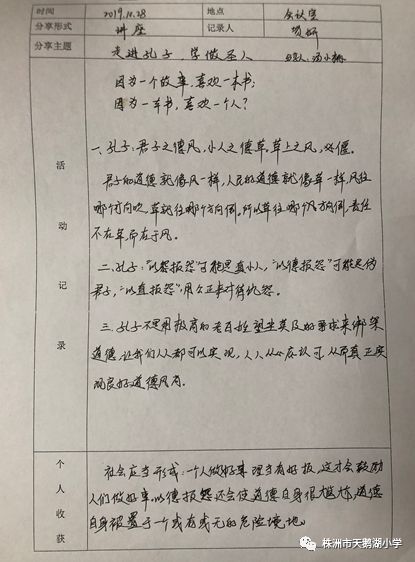 时间 2019.10.28 地点 会议室
分享形式 讲座 记录人 贺妍
分享主题 走进孔子,学做圣人
因为一个故事,喜欢一本书;
因为一本书,喜欢一个人?
活动记录
一、孔子:君子之德风,小人之德草。草上之风,必偃。
君子的道德就像风一样,人民的道德就像草一样,风往
哪个方向吹,草就往哪个方向倒。所以草往哪个方向倒,责任
不在草,而在于风。
二、孔子:“以怨报怨”可能是真小人,“以德报怨”可能是伪
君子,“以直报怨”,用公正来对待仇怨。
三、孔子不是用极高的老百姓望尘莫及的要求来绑架
道德,让我们人人都可以实现,人人从心底认可,从而真正实
现良好道德风尚。
个人收获
社会应当形成:一个人做好事理当有好报,这才会鼓励
人们做好事,以德报怨还会使道德自身很尴尬,道德
自身被置于一个或有或无的危险境地。
株洲市天鹅湖小学